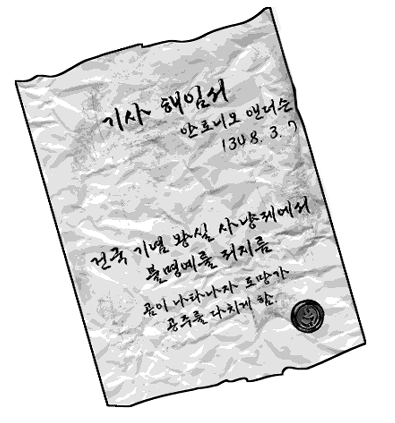 기사 해임서
안로니모 앤더슨
1348. 3. 7
건국 기념 왕실 사냥제에서
불명예를 저지름
곰이 나타나자 도망가
공주를 다치게 함.